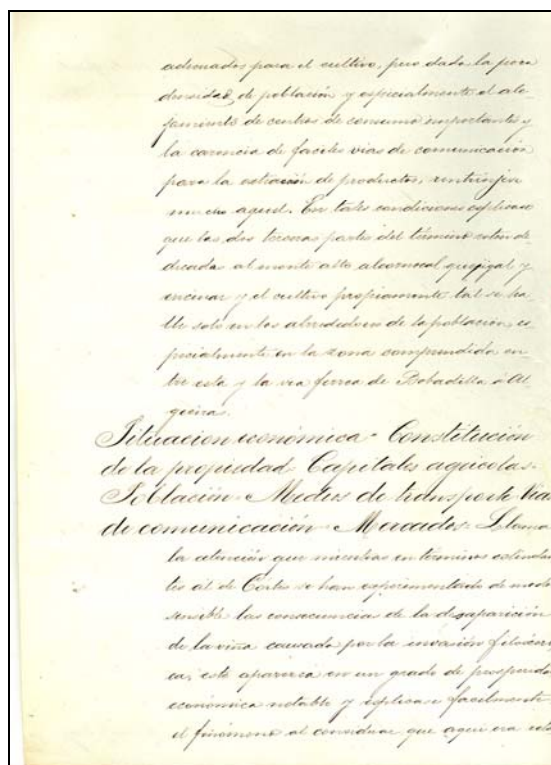 adecuados para el cultivo, pero dada la poca
densidad de población y especialmente el ale-
jamiento de centros de consumo importantes y
la carencia de faciles vias de comunicación
para la estracción de productos, restrinjese
mucho aquel. En tales condiciones esplicase
que las dos terceras partes del término estén de-
dicadas al monte alto alcornocal quejigal y
encinar y el cultivo propiamente tal se ha-
lle solo en los alrededores de la población, es-
pecialmente en la zona comprendida en-
tre esta y la via ferrea de Bobadilla á Al-
geciras.
Situacion económica - Constitución
de la propiedad. Capitales agricolas.
Población - Medios de transporte Vias
de comunicación - Mercados. Llama
la atención que mientras en términos
al de Cortes se han esperimentado de modo
sensible las consecuencias de la desaparición
de la viña causada por la invasión filoxéri-
ca, este aparezca en un grado de prosperidad
económica notable y esplicase facilmente
el fenómeno al considerar que aqui era